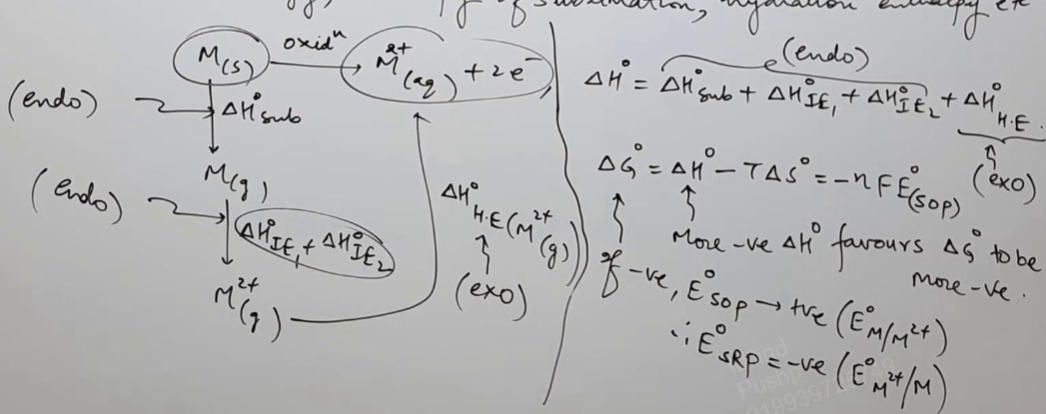 of sublimation, hydration enthalpy etc
M(s) oxidⁿ → M²⁺(aq) + 2e⁻
(endo) ΔH°sub
M(g)
(endo) ΔH°IE₁ + ΔH°IE₂
M²⁺(g)
ΔH°H.E (M²⁺(g))
(exo)
(endo)
ΔH° = ΔH°sub + ΔH°IE₁ + ΔH°IE₂ + ΔH°H.E.
(exo)
ΔG° = ΔH° − TΔS° = −nFE°(SOP)
More -ve ΔH° favours ΔG° to be
more -ve.
If -ve, E°SOP → +ve (E°M/M²⁺)
∴ E°SRP = -ve (E°M²⁺/M)